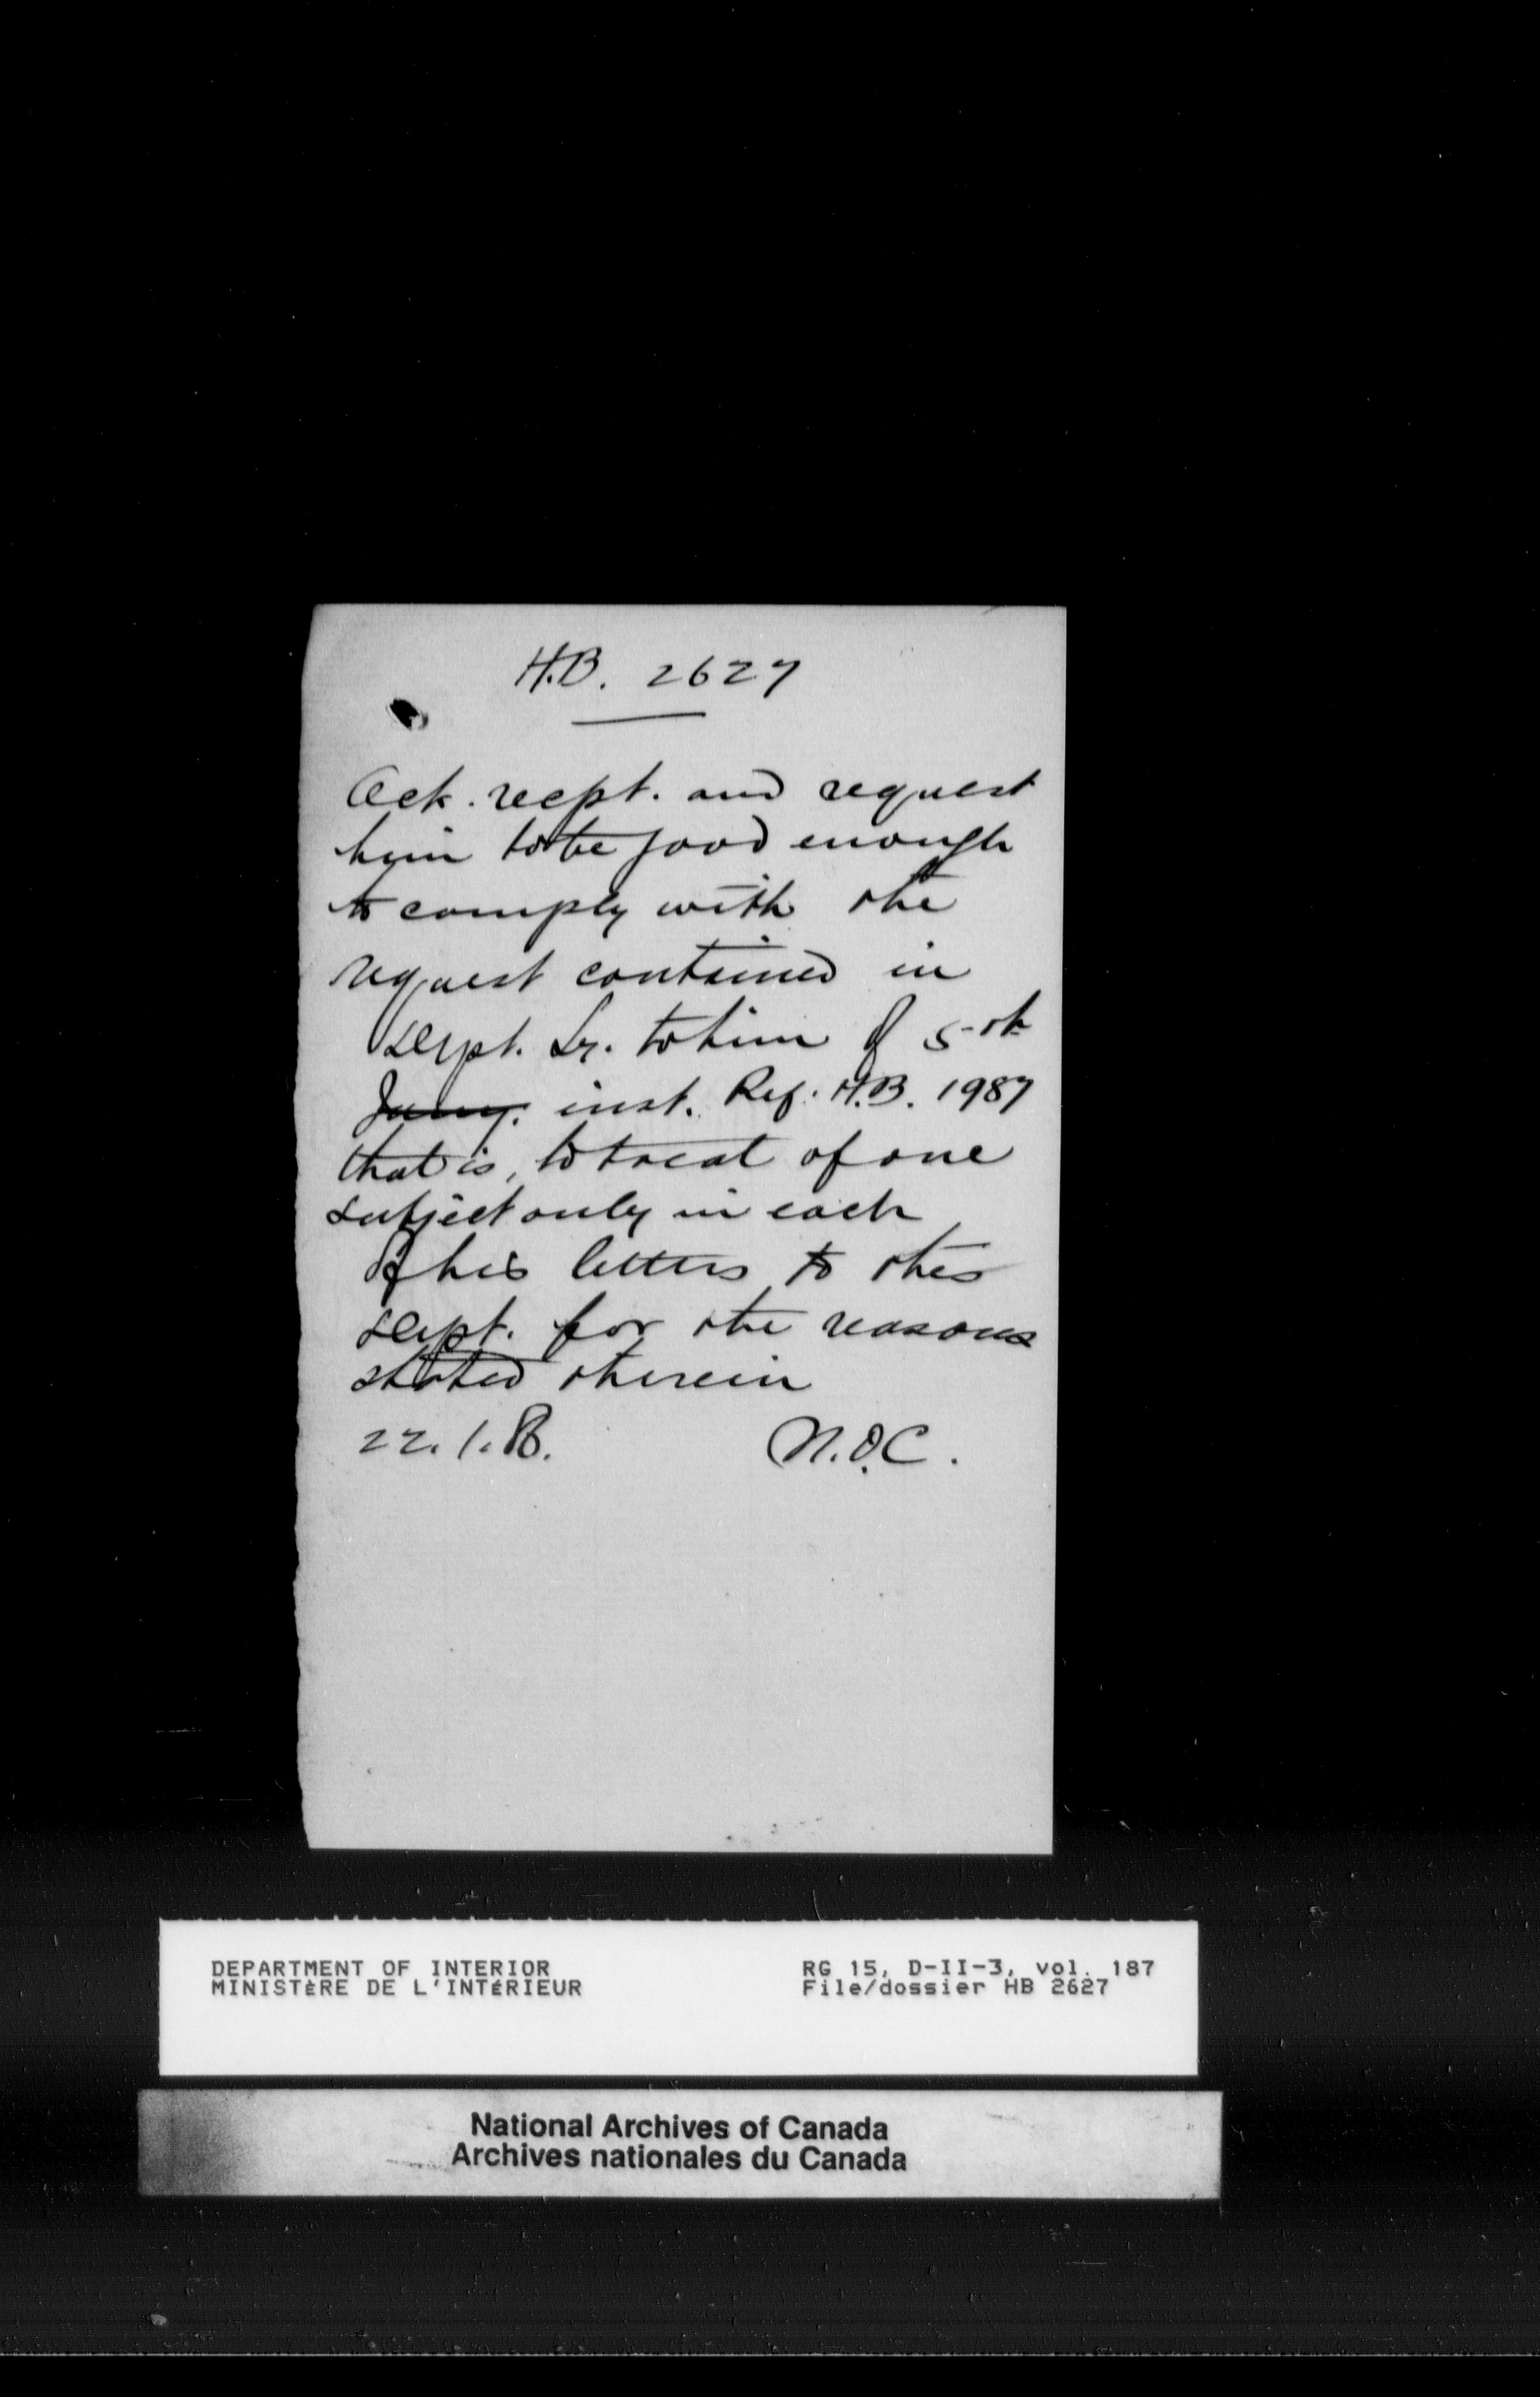 H.B. 2627
Ack. recpt. and request
him to be good enough
to comply with the
request contained in
Dept. Lr. to him of 5th
Jany. inst. Ref. H.B. 1987
that is, to treat of one
subject only in each
of his letters to this
Dept. for the reasons
stated therein
22.1.8
N.O.C.
DEPARTMENT OF INTERIOR
MINISTÈRE DE L'INTÉRIEUR
RG 15, D-II-3, vol. 187
File/dossier HB 2627
National Archives of Canada
Archives nationales du Canada